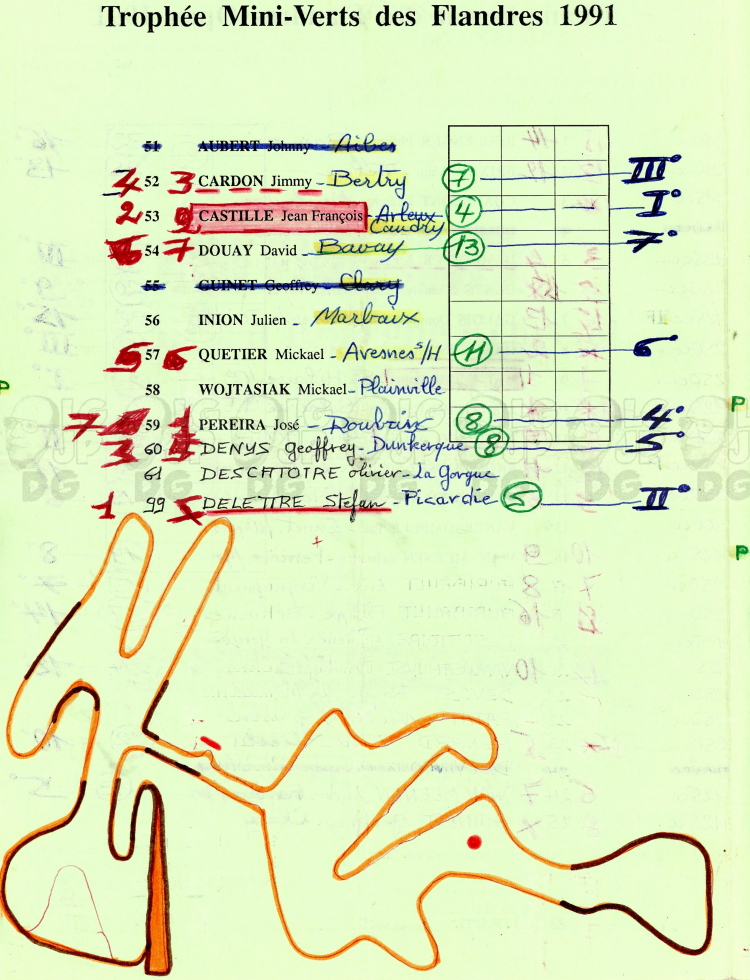 Trophée Mini-Verts des Flandres 1991
51 AUBERT Johnny - Aibes
4 52 3 CARDON Jimmy - Bertry 7 III°
2 53 2 CASTILLE Jean François - Arleux Caudry 4 I°
54 7 DOUAY David - Bavay 13 7°
55 GUINET Geoffroy - Clary
56 INION Julien - Marbaix
5 57 6 QUETIER Mickael - Avesnes s/H 11 6°
58 WOJTASIAK Mickael - Plainville
P
P
7 59 1 PEREIRA José - Roubaix 8 4°
3 60 4 DENYS Geoffrey - Dunkerque 8 5°
61 DESCATOIRE olivier - La Gorgue
1 99 5 DELETTRE Stefan - Picardie 5 II°
P
DG DG DG DG